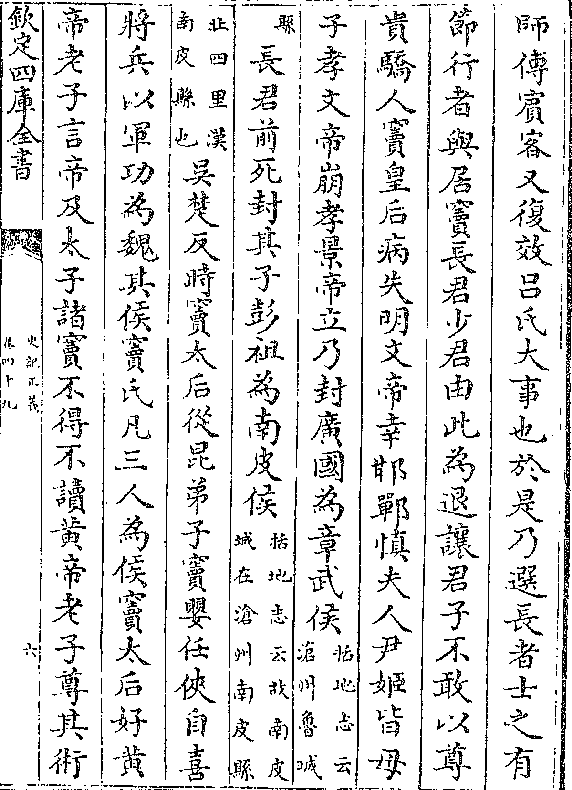 師傅賔客又復效呂氏大事也於是乃選長者士之有
節行者與居竇長君少君由此為退讓君子不敢以尊
貴驕人竇皇后病失明文帝幸邯鄲慎夫人尹姬皆毋
子孝文帝崩孝景帝立乃封廣國為章武侯括地志云滄州魯城
縣長君前死封其子彭祖為南皮侯括地志云故南皮城在滄州南皮縣
北四里漢南皮縣也吳楚反時竇太后從昆弟子竇嬰任俠自喜
將兵以軍功為魏其侯竇氏凡三人為侯竇太后好黄
帝老子言帝及太子諸竇不得不讀黄帝老子尊其術
欽定四庫全書
史記正義
卷四十九
六